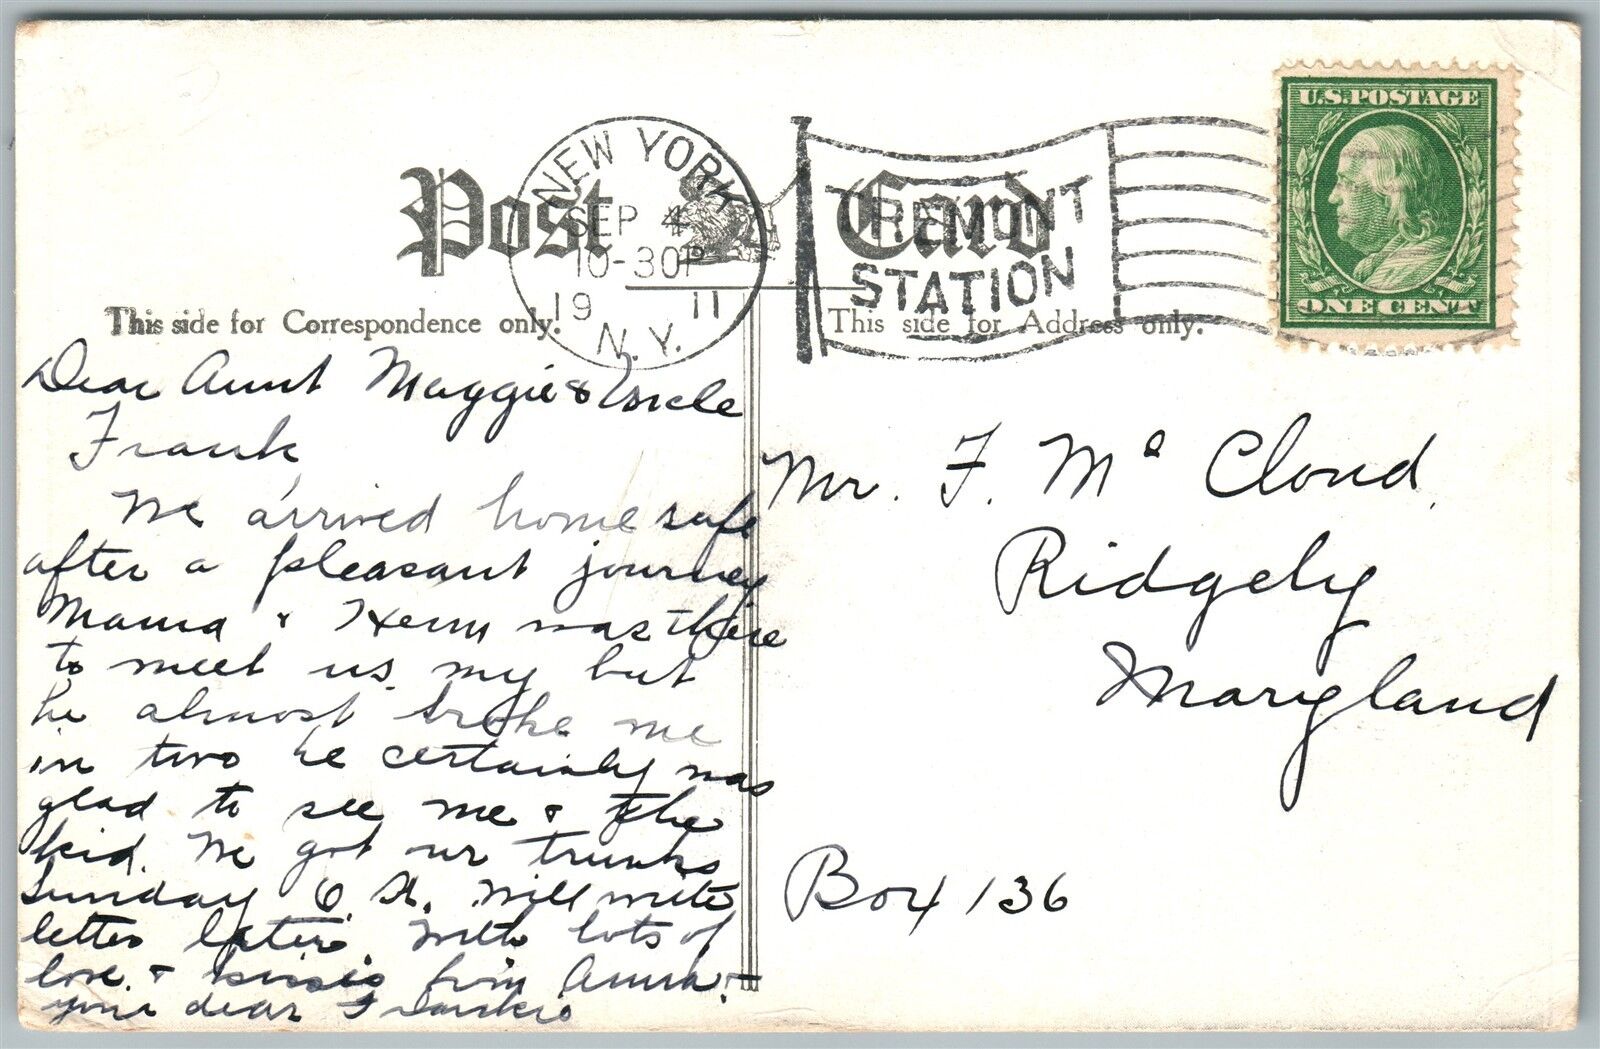 Post Card
NEW YORK
SEP 4
10-30P
19 11
N.Y.
TREMONT
STATION
U.S. POSTAGE
ONE CENT
This side for Correspondence only.
This side for Address only.
Dear Aunt Maggie & Uncle
Frank
We arrived home safe
after a pleasant journey
Mama & Henry was there
to meet us. my but
he almost broke me
in two he certainly was
glad to see me & the
kid. We got our trunks
Sunday 6 Will write
letter later. With lots of
love & kisses from Anna &
your dear Frankie
Mr. F. Mc Cloud.
Ridgely
Maryland
Box 136